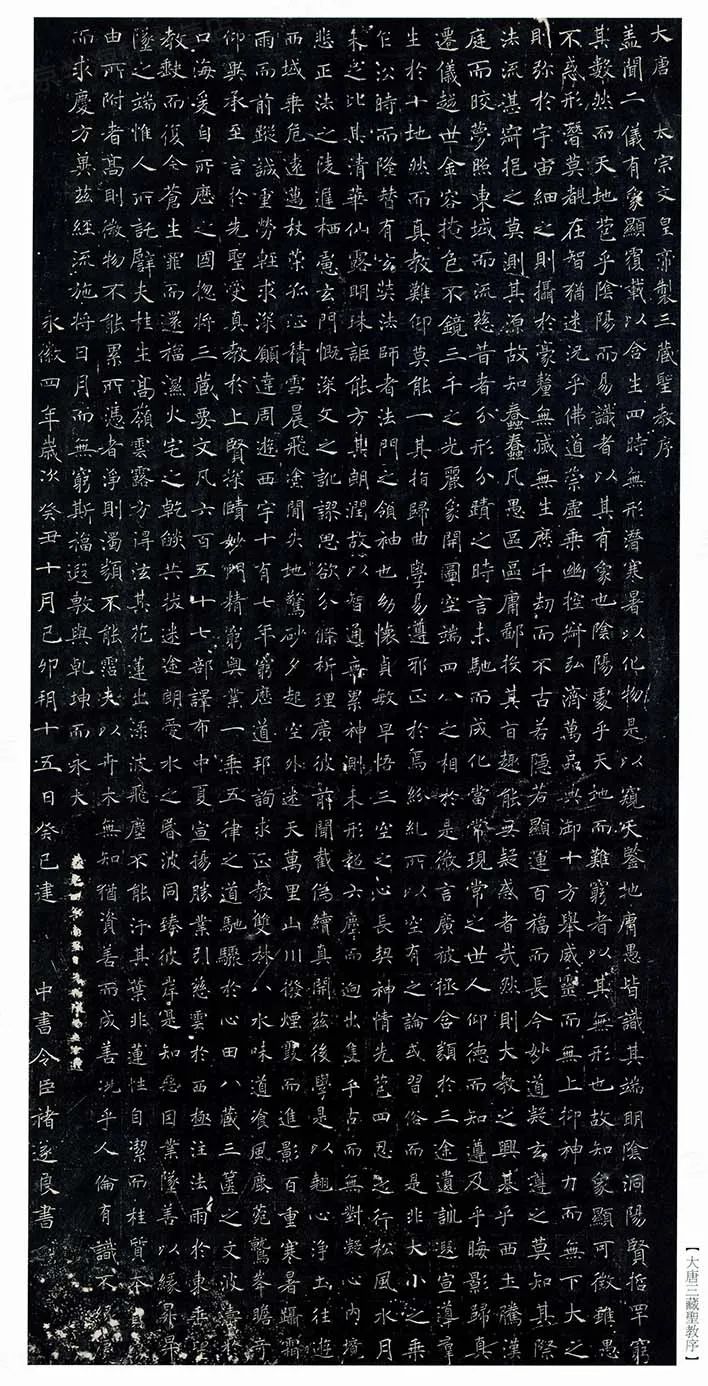 大唐 太宗文皇帝製三藏聖教序
蓋聞二儀有象顯覆載以含生四時無形潛寒暑以化物是以窺天鑒地庸愚皆識其端明陰洞陽賢哲罕窮
其數然而天地苞乎陰陽而易識者以其有象也陰陽處乎天地而難窮者以其無形也故知象顯可徵雖愚
不惑形潛莫覩在智猶迷況乎佛道崇虛乘幽控寂弘濟萬品典御十方舉威靈而無上抑神力而無下大之
則彌於宇宙細之則攝於豪釐無滅無生歷千劫而不古若隱若顯運百福而長今妙道凝玄遵之莫知其際
法流湛寂挹之莫測其源故知蠢蠢凡愚區區庸鄙投其旨趣能無疑惑者哉然則大教之興基乎西土騰漢
庭而皎夢照東域而流慈昔者分形分蹟之時言未馳而成化當常現常之世人仰德而知遵及乎晦影歸真
遷儀越世金容掩色不鏡三千之光麗象開圖空端四八之相於是微言廣被拯含類於三途遺訓遐宣導群
生於十地然而真教難仰莫能一其指歸曲學易遵邪正於焉紛糺所以空有之論或習俗而是非大小之乘
乍沿時而隆替有玄奘法師者法門之領袖也幼懷貞敏早悟三空之心長契神情先苞四忍之行松風水月
未足比其清華仙露明珠詎能方其朗潤故以智通無累神測未形超六塵而迥出隻千古而無對凝心內境
悲正法之陵遲栖慮玄門慨深文之訛謬思欲分條析理廣彼前聞截偽續真開茲後學是以翹心淨土往遊
西域乘危遠邁杖策孤征積雪晨飛途閒失地驚砂夕起空外迷天萬里山川撥煙霞而進影百重寒暑躡霜
雨而前蹤誠重勞輕求深願達周遊西宇十有七年窮歷道邦詢求正教雙林八水味道飡風鹿菀鷲峯瞻奇
仰異承至言於先聖受真教於上賢探賾妙門精窮奧業一乘五律之道馳驟於心田八藏三篋之文波濤於
口海爰自所歷之國總將三藏要文凡六百五十七部譯布中夏宣揚勝業引慈雲於西極注法雨於東垂聖
教缺而復全蒼生罪而還福濕火宅之乾燄共拔迷途朗愛水之昏波同臻彼岸是知惡因業墜善以緣昇昇
墜之端惟人所託譬夫桂生高嶺雲露方得泫其花蓮出淥波飛塵不能汙其葉非蓮性自潔而桂質本貞
由所附者高則微物不能累所憑者淨則濁類不能霑夫以卉木無知猶資善而成善況乎人倫有識不緣慶
而求慶方冀茲經流施將日月而無窮斯福遐敷與乾坤而永大
永徽四年歲次癸丑十月己卯朔十五日癸巳建 中書令臣褚遂良書
【大唐三藏聖教序】